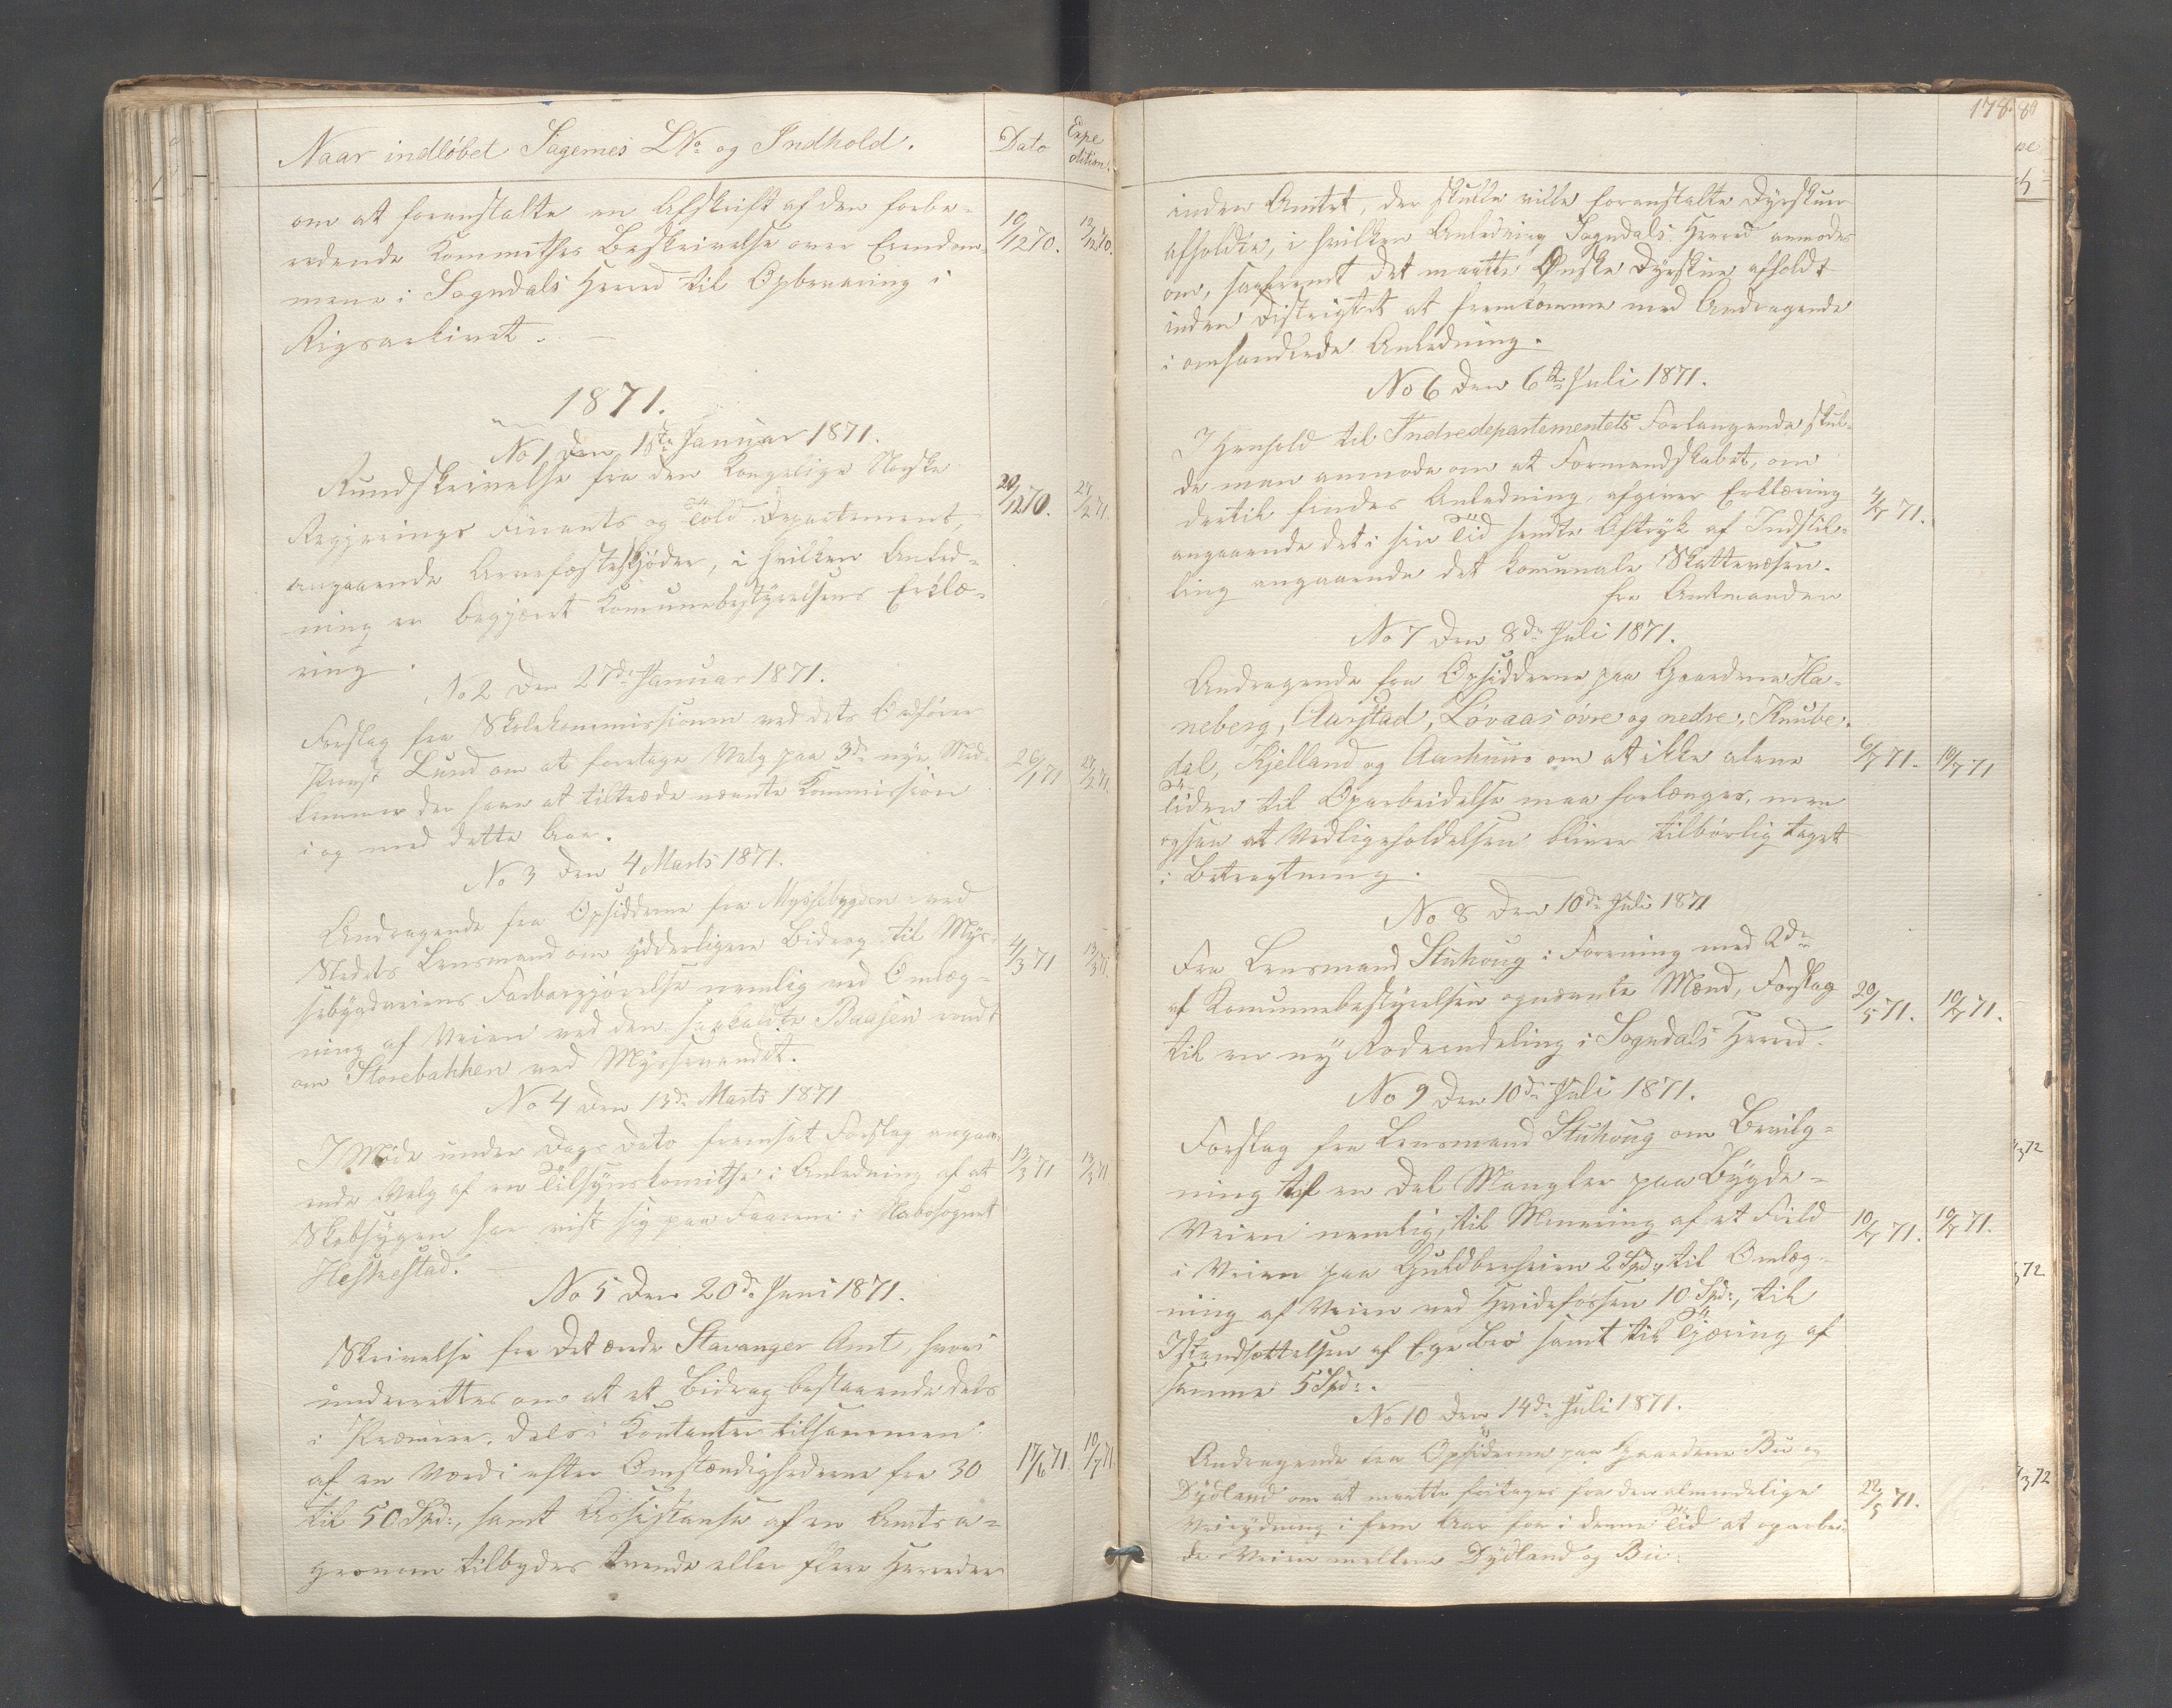 Naar indløbet Sagernes LNo og Indhold.
Dato
Expe
dition.
om at foranstalte en Afskrift af den forbe-
redende Kommithes Beskrivelse over Eiendom-
mene i Sogndals Herred til Opbevaring i
Rigsarkivet.
10/12 70.
12/12 70.
1871.
No 1 den 16de Januar 1871.
Rundskrivelse fra den Kongelige Norske
Regjerings Finants og Told Departement,
angaaende Arvefæsteskjøder, i hvilken Anled-
ning er begjært Komunebestyrelsens Erklæ-
ring.
/12 70.
No 2 den 27de Januar 1871.
Forslag fra Skolekommissionen ved dets Ordfører
Provst Lund om at foretage Valg paa 3de nye Med-
lemmer der have at tiltræde nævnte Kommission
i og med dette Aar.
26/1 71
No 3 den 4 Marts 1871.
Andragende fra Opsidderne fra Myssebygden ved
Stedets Lensmand om ydderligere Bidrag til Mys-
sebygdveiens Farbargjørelse nemlig ved Omlæg-
ning af Veien ved den saakaldte Baasen rundt
om Storebakken ved Myssevandet.
4/3 71
13/3 71.
No 4 den 13de Marts 1871
I Møde under Dags Dato fremsat Forslag angaa-
ende Valg af en Tilsynskomithe i Anledning af at
Skabsygen har vist sig paa Faarene i Nabosognet
Heskestad.
13/3 71
13/3 71
No 5 den 20de Juni 1871.
Skrivelse fra det ærede Stavanger Amt, hvori
underrettes om at et Bidrag bestaaende dels
i Præmier, dels i Kontanter tilsammen
af en Værdi efter Omstændighederne fra 30
til 50 Spd:, samt Assistanse af en Amtsa-
gronom tilbydes tvende eller flere Herreder
17/6 71.
10/7 71.
178.
inden Amtet, der skulle ville foranstalte Dyrskuer
afholdte, i hvilken Anledning Sogndals Herred anmodes
om, saafremt det maatte Ønske Dyrskue afholdt
inden Distriktet at fremkomme med Andragende
i omhandlede Anledning.
No 6 den 6te Juli 1871.
I Henhold til Indredepartementets Forlangende skul-
de man anmode om at Formandskabet, om
dertil findes Anledning, afgiver Erklæring
angaaende det i sin Tid sendte Aftryk af Indstil-
ling angaaende det komunale Skattevæsen.
fra Amtmanden
4/7 71.
No 7 den 8de Juli 1871.
Andragende fra Opsidderne paa Gaardene Ha-
neberg, Aarstad, Løvaas øvre og nedre, Knube-
dal, Kjelland og Aarhuus om at ikke alene
tiden til Oparbeidelse maa forlænges, men
ogsaa at Vedligeholdelsen bliver tilbørlig taget
i Betragtning.
6/7 71.
10/7 71
No 8 den 10de Juli 1871
Fra Lensmand Stuhoug i Forening med 2de
af Komunebestyrelsen opnævnte Mænd, Forslag
til en ny Rodeindeling i Sogndals Herred.
20/5 71.
10/7 71.
No 9 den 10de Juli 1871.
Forslag fra Lensmand Stuhoug om Bevilg-
ning til en Del Mangler paa Bygde-
Veien nemlig, til Minering af et Field
i Veien paa Guldberheien 2 Spd:, til Omlæg-
ning af Veien ved Hvidefossen 10 Spd:, til
Istandsættelsen af Ege Bro samt til Tjæring af
samme 5 Spd:.
10/7 71.
10/7 71.
No 10 den 14de Juli 1871.
Andragende fra Opsiderne paa Gaardene Bu og
Dydland om at maatte fritages fra den almindelige
Veirydning i fem Aar for i denne Tid at oparbei-
de Veien mellem Dydland og Bu.
22/5 71.